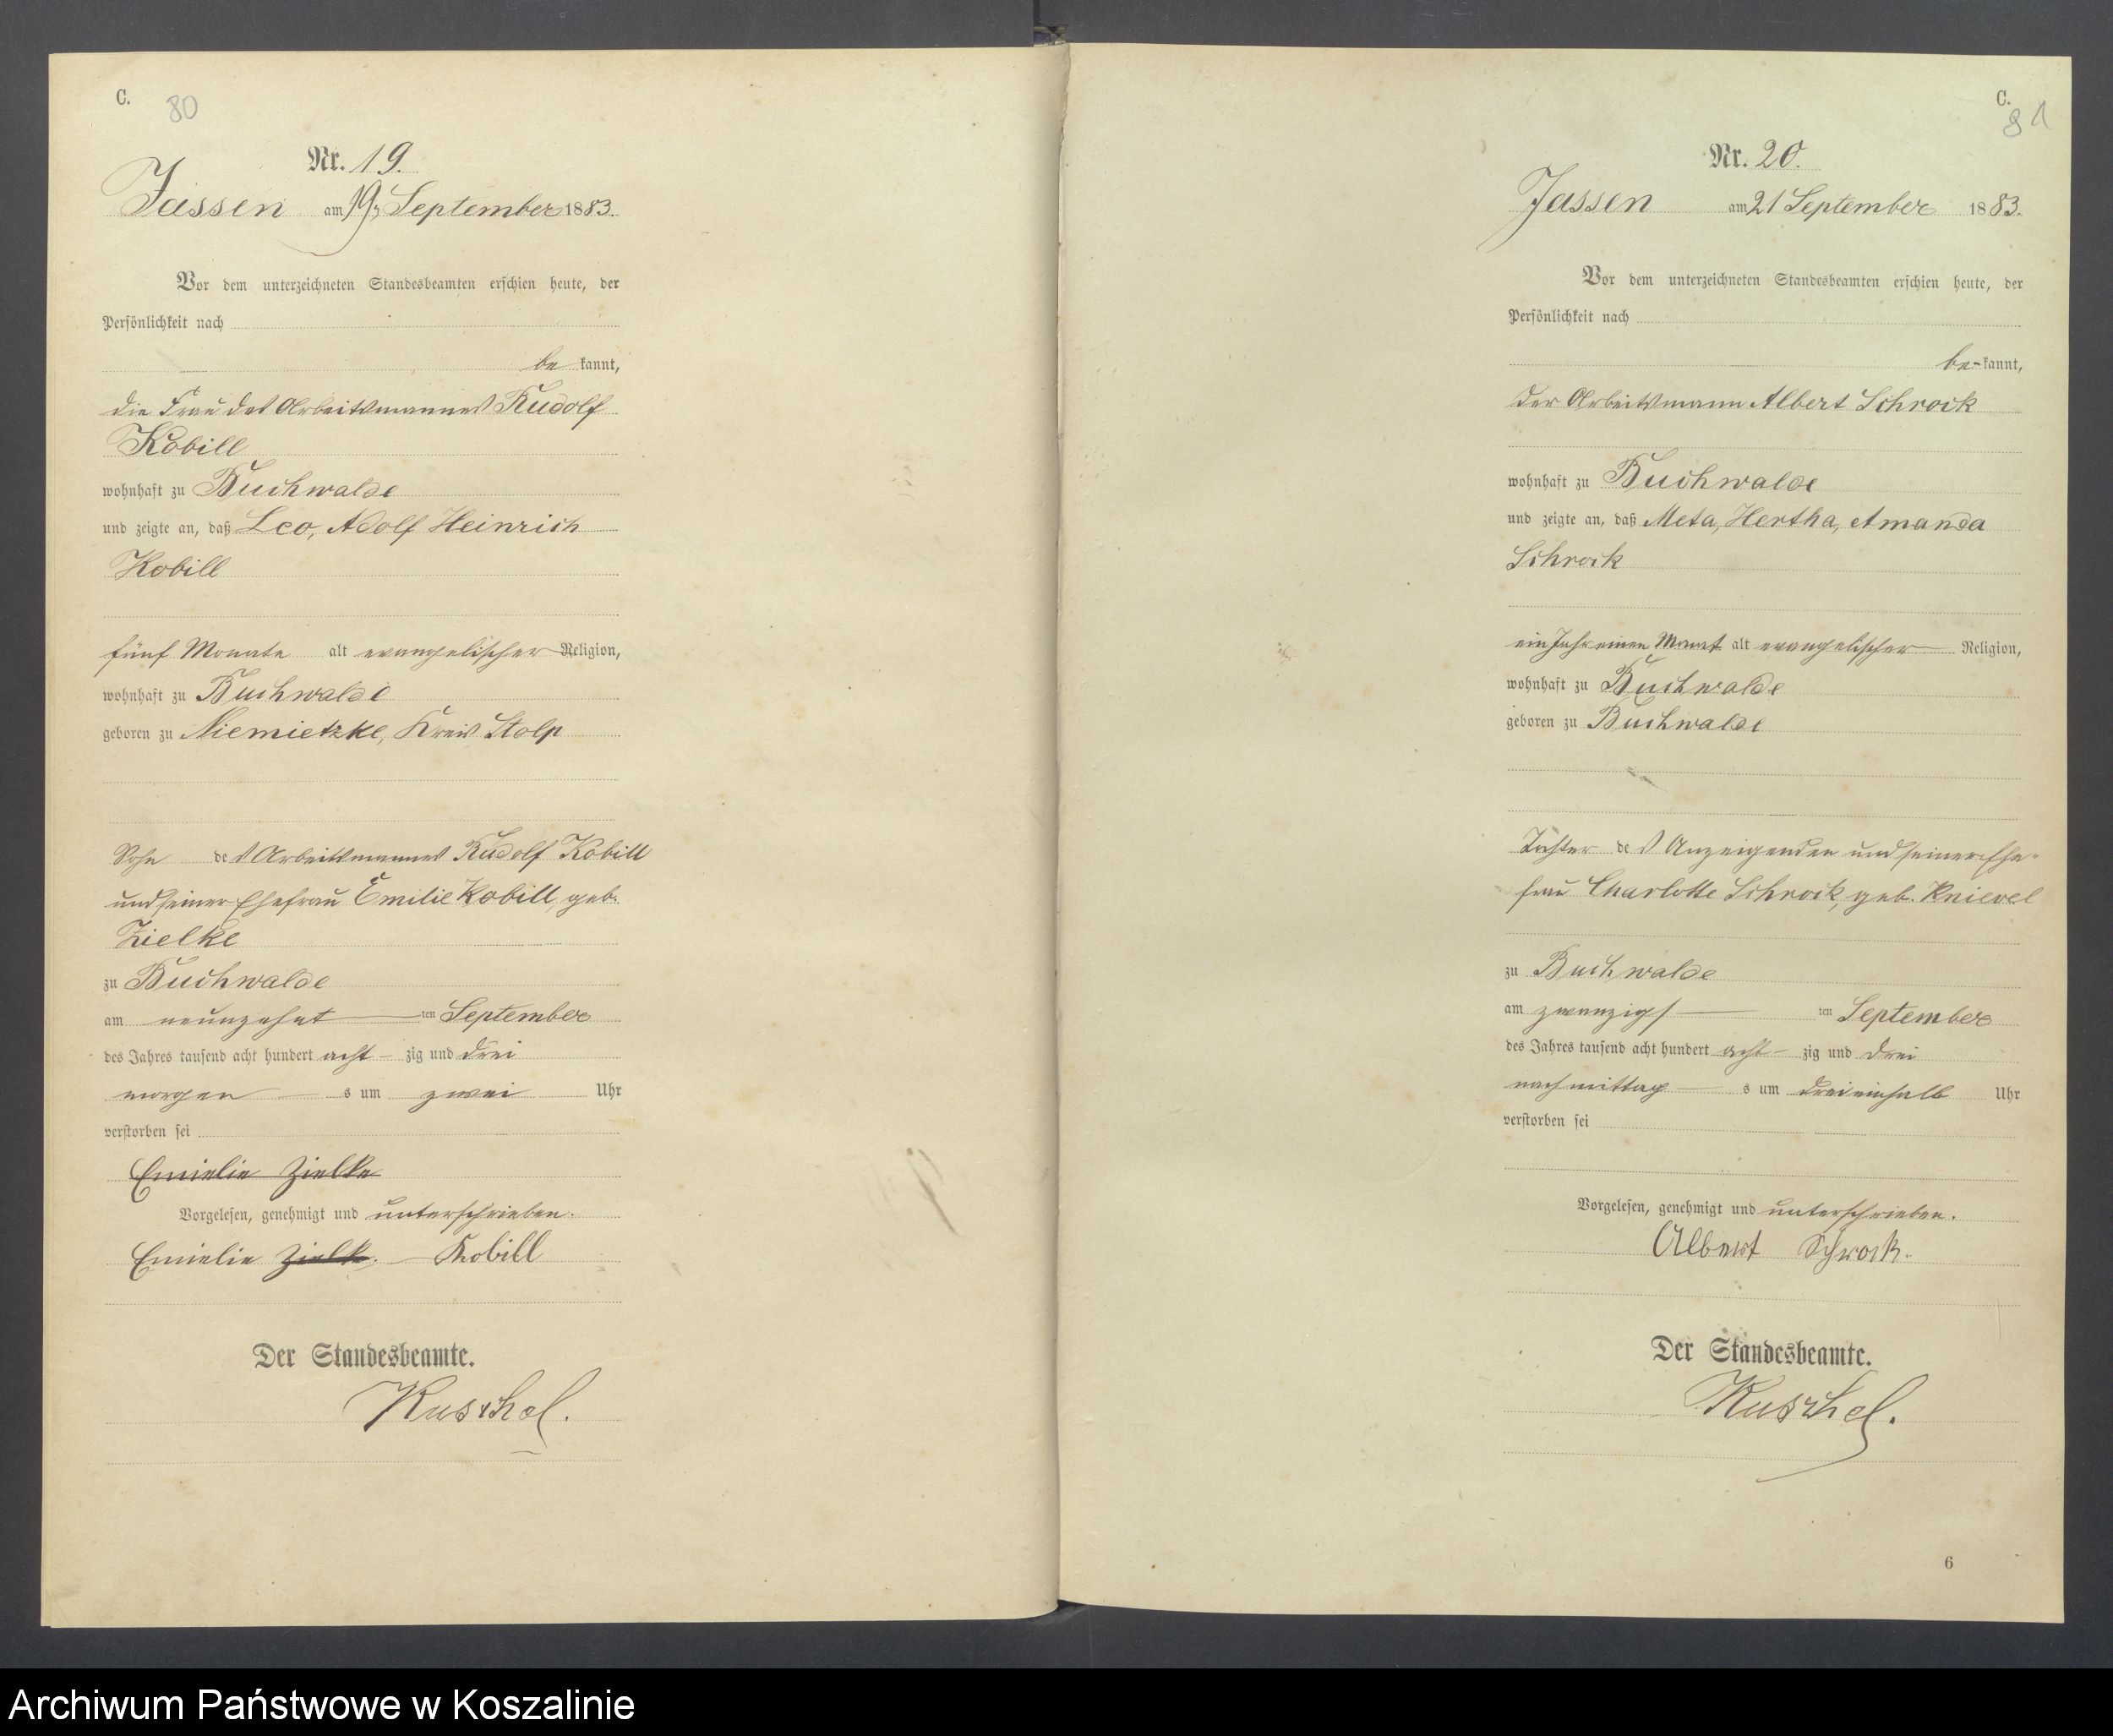 C.
80
Nr. 19.
Jassen am 19. September 1883.
Vor dem unterzeichneten Standesbeamten erschien heute, der
Persönlichkeit nach
be kannt,
die Frau des Arbeitsmannes Rudolf
Kobill
wohnhaft zu Buchwalde
und zeigte an, daß Leo, Adolf Heinrich
Kobill
fünf Monate alt evangelischer Religion,
wohnhaft zu Buchwalde
geboren zu Niemietzke, Kreis Stolp
Sohn des Arbeitsmannes Rudolf Kobill
und seiner Ehefrau Emilie Kobill, geb.
Zielke
zu Buchwalde
am neunzehnt ten September
des Jahres tausend acht hundert acht zig und drei
morgen s um zwei Uhr
verstorben sei
Emielie Zielke
Vorgelesen, genehmigt und unterschrieben.
Emielie Zielk. Kobill
Der Standesbeamte.
Kuschel.
C.
81
Nr. 20.
Jassen am 21 September 1883.
Vor dem unterzeichneten Standesbeamten erschien heute, der
Persönlichkeit nach
be-kannt,
der Arbeitsmann Albert Schrock
wohnhaft zu Buchwalde
und zeigte an, daß Meta, Hertha, Amanda
Schrock
ein Jahr einen Monat alt evangelischer Religion,
wohnhaft zu Buchwalde
geboren zu Buchwalde
Tochter des Anzeigenden und seiner Ehe-
frau Charlotte Schrock, geb. Knievel
zu Buchwalde
am zwanzigs ten September
des Jahres tausend acht hundert acht zig und drei
nachmittag s um dreieinhalb Uhr
verstorben sei
Vorgelesen, genehmigt und unterschrieben.
Albert Schrock.
Der Standesbeamte.
Kuschel.
6
Archiwum Państwowe w Koszalinie